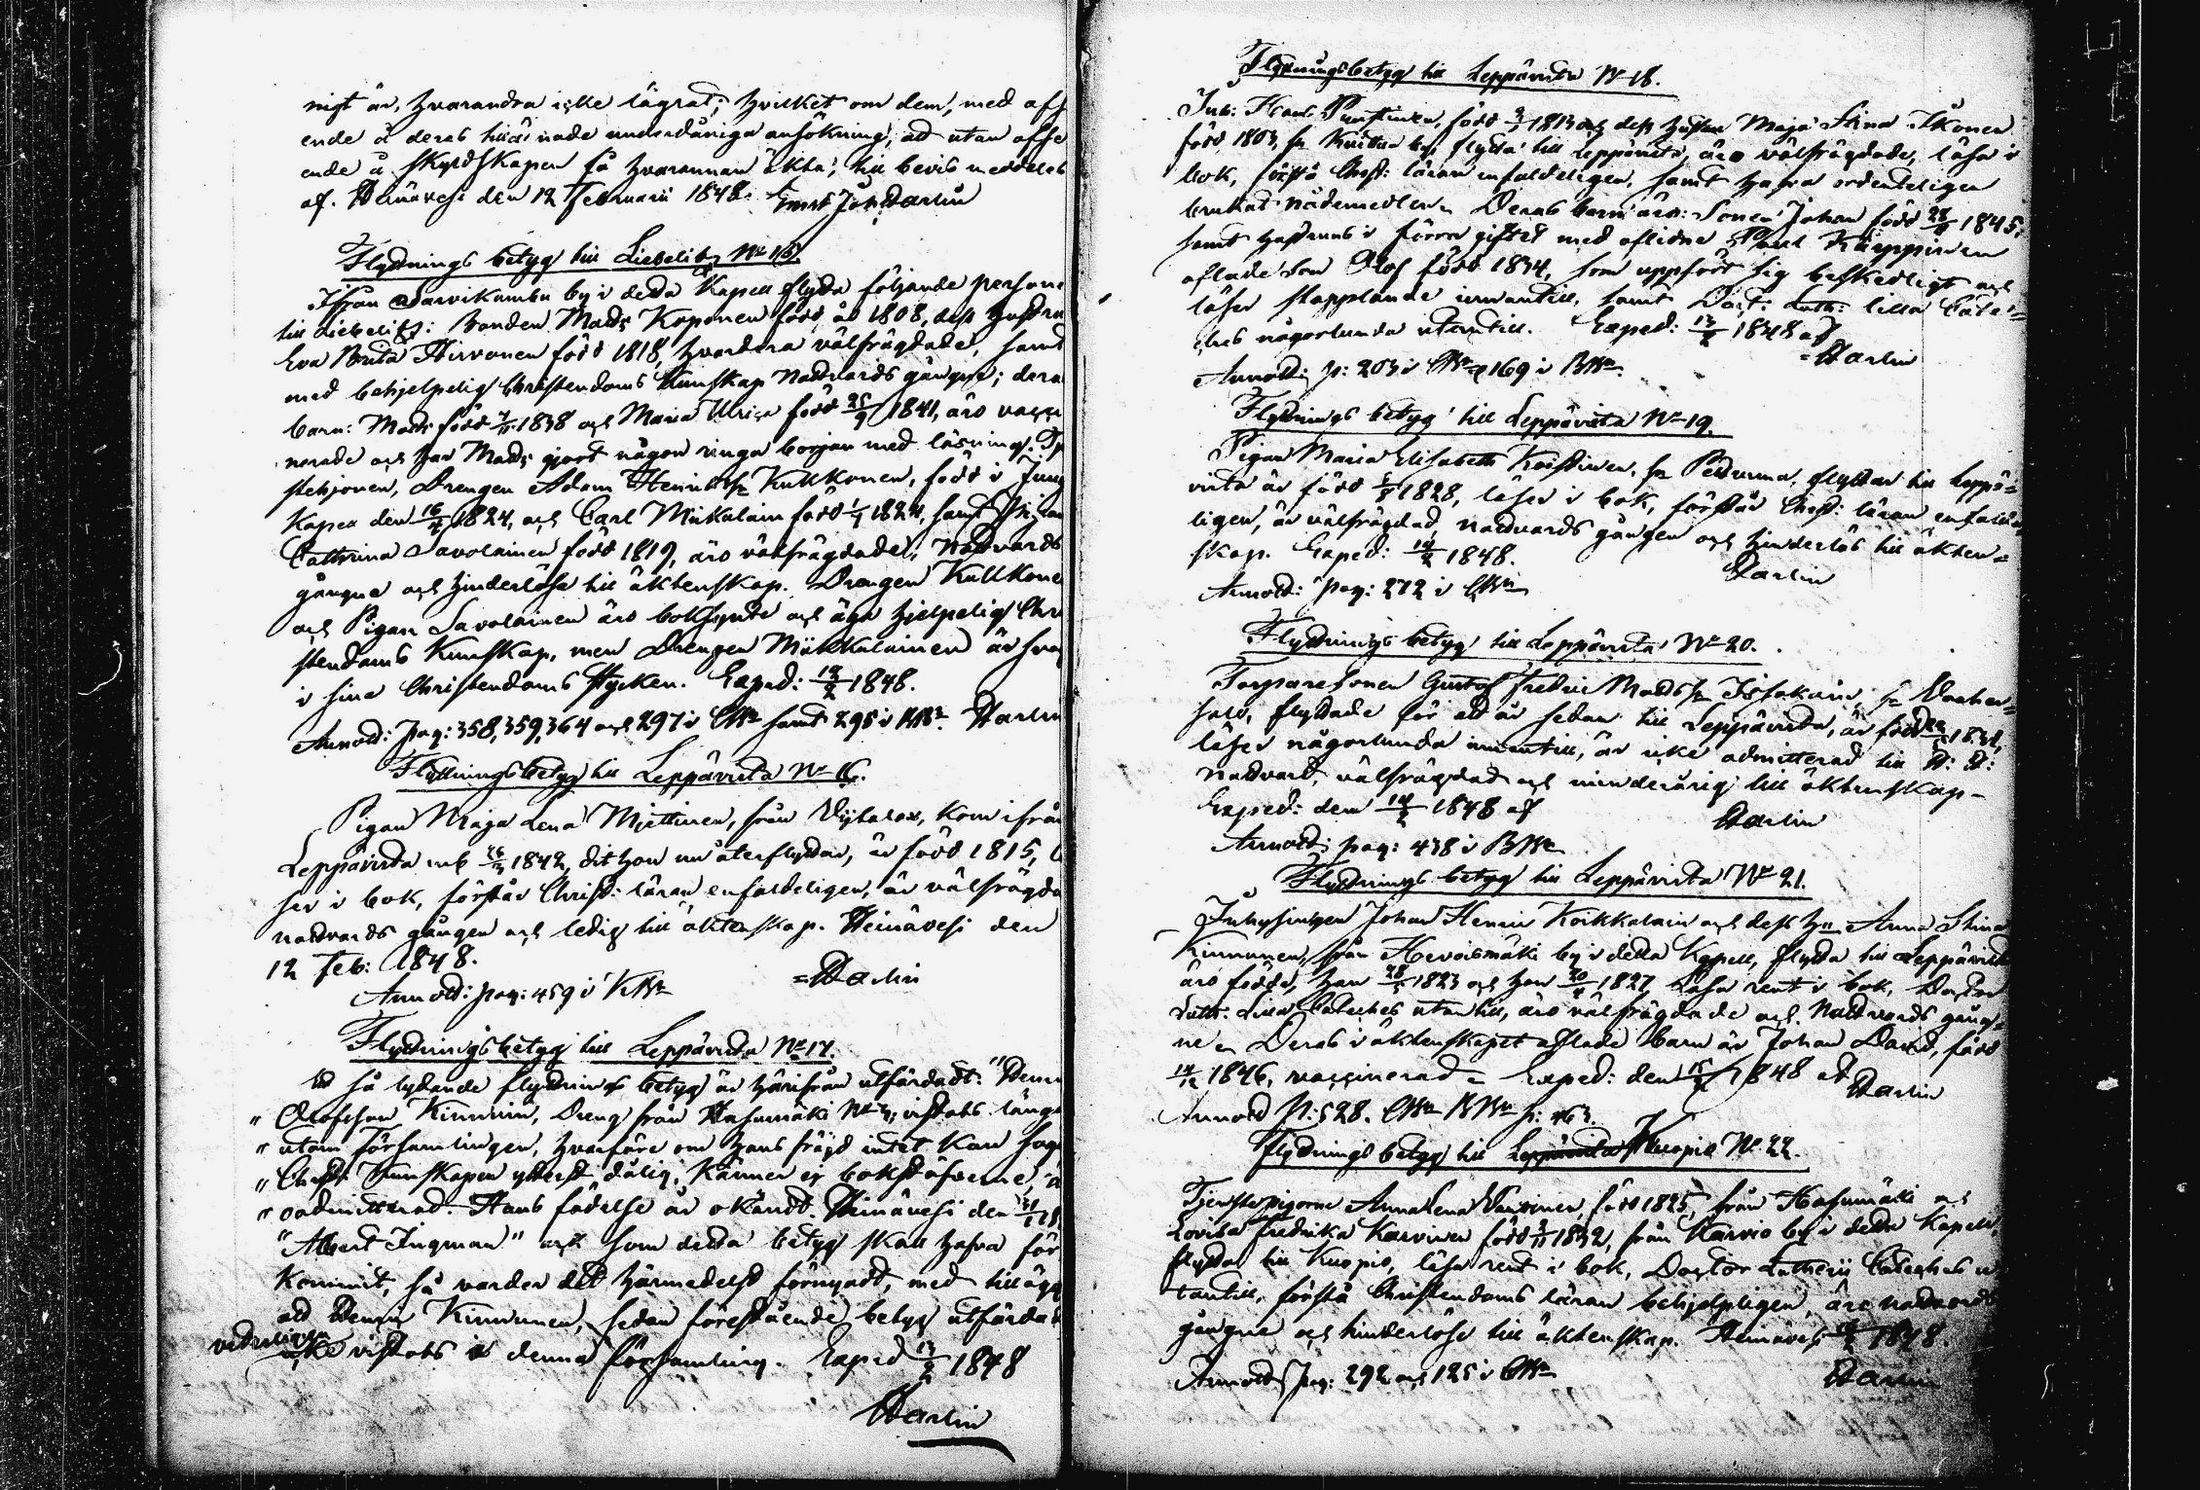 nigt är, hvarandra icke lägrat; hvilket om dem, med afs
ende å deras underdåniga ansökning, att utan afse
ende å skyldskapen få hvarannan äkta, till bevis meddelas
af. Heinävesi den 12 Februarii 1848. Ernst Joh Harlin
Flyttnings betyg till Liebelitz No 15.
Ifrån Sarvikumbu by i detta Kapell flytta följande persone
till Liebelitz: Bonden Matts Koponen född år 1808, dess hustru
Eva Brita Hirvonen född 1818, hvardera välfrägdade, samt
med behjelpelig Christendoms Kunskap Nattvards gångne; dera
barn: Matts född 1838 och Maria Ulrica född 25/9 1841, äro vacci
nerade och har Matts gjort någon ringa början med läsning.
stehjonen, Drengen Adam Henriksson Kukkonen, född i Jung
Kapell den 16/4 1824, och Carl Miikalain född 1824, samt Pigan
Cathrina Savolainen född 1819, äro välfrägdade, Nattvards
gångne och hinderlösa till äktenskap. Drengen Kukkone
och Pigan Savolainen äro boksynte och äga hjelpelig Chri
stendoms Kunskap, men Drengen Miikkalainen är svag
i sina Christendoms stycken. Exped: 12/2 1848.
Annot: Pag: 358, 359, 364 och 297 i samt 295 i Harlin
Flyttningsbetyg till Leppävirta No 16.
Pigan Maja Lena Miettinen, från Vihtalax, kom ifrån
Leppävirta 1842, dit hon nu återflyttar, är född 1815, lä
ser i bok, förstår Christ: läran enfaldeligen, är välfrägda
nattvards gången och ledig till äktenskap. Heinävesi den
12 Feb: 1848.
=Harlin
Annot: pag: 459 i
Flyttningsbetyg till Leppävirta No 17.
Ett så lydande flyttnings betyg är härifrån utfärdadt: "Henr
" Olofsson Kinnuin, Dreng från Hasumäki No 4, vistats länge
" utom församlingen, hvarföre om hans frägd intet kan säg
" Christ: Kunskapen ytterst dålig, känner ej bokstäfverne, ä
" oadmitterad. Hans födelse är okändt. Heinävesi den
"Albert Ingman" och som detta betyg skall hafva för
kommit, så varder det härmedelst förnyadt, med tillägg
att Henric Kinnunen, sedan förestående betyg utfärdat
icke vistats i denna församling. Exped 13/2 1848
Harlin
Flyttningsbetyg till Leppävirta No 18.
Inh: Hans Puustinen, född 1813 och dess hustru Maja Stina Ikonen
född 1803, fr by, flytta till Leppävirta, äro välfrägdade, läsa i
bok, förstå Christ: läran enfaldeligen, samt hafva ordenteligen
brukat nådemedlen. Deras barn äro: Sonen Johan född 1845,
samt hustruns i förra giftet med aflidne Karppinen
aflade Son Olof född 1834, som uppfört sig beskedligt och
läser stapplande innantill, samt Doct: Luth: lilla Cate=
ches någorlunda utantill. Exped: 13/2 1848 af
=Harlin
Annot: p: 203 i 169 i
Flyttnings betyg till Leppävirta No 19.
Pigan Maria Elisabeth Koistinen, fr Petruma, flyttar till Leppä=
virta är född 1828, läser i bok, förstår Christ: läran enfalde
ligen, är välfrägdad, nattvards gången och hinderlös till äkten=
skap. Exped: 14/2 1848.
Harlin
Annot: Pag: 272 i
Flyttnings betyg till Leppävirta No 20.
Torpare Sonen Gustaf Fredric Mattsson Issakain, fr
flyttade för ett år sedan till Leppävirta, är född
läser någorlunda innantill, är icke admitterad till H: H:
nattvard, välfrägdad och minderårig till äktenskap.
Exped: den 14/2 1848 af
Harlin
Annot: pag: 438 i
Flyttnings betyg till Leppävirta No 21.
Inhysingen Johan Henric Koikkalain och dess Anna Stina
Kinnunen, från by i detta Kapell, flytta till Leppävirta
äro födde, han 28/5 1823 och hon 1827. Läsa rent i bok, Doctor
Luth: Lilla Cateches utantill, äro välfrägdade och Nattvards gång=
ne. Deras i äktenskapet aflade barn är Johan David, född
14/12 1846, vaccinerad. Exped: den 15/2 1848 af Harlin
Annot P: 528. p: 463.
Flyttnings betyg till Kuopio No 22.
Tjenstepigorne Anna Lena född 1825, från Hasumäki och
Lovisa Fredrika Karvinen född 1832, från Karvio by i detta Kapell,
flytta till Kuopio, läsa rent i bok, Doctor Lutherii Cateches u
tantill, förstå Christendoms läran behjelpligen, äro nattvards
gångne och hinderlöse till äktenskap. Heinävesi 1848.
Annot: Pag: 292 och 125 i
Harlin